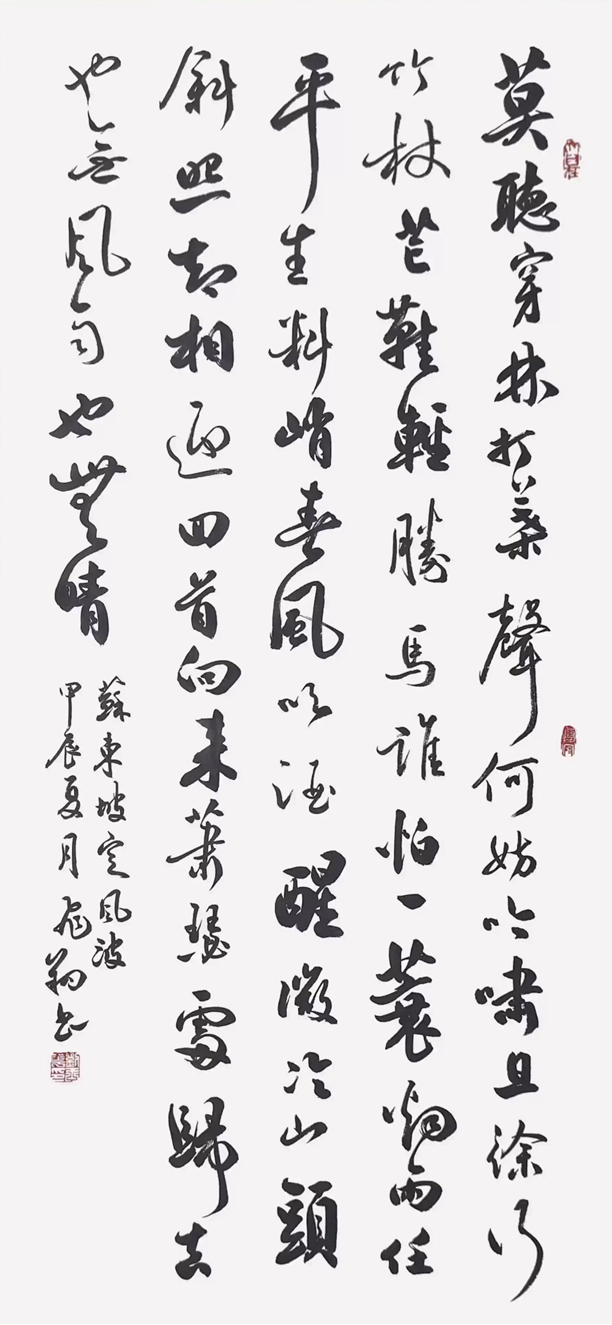 莫聽穿林打葉聲何妨吟嘯且徐行
竹杖芒鞋輕勝馬誰怕一蓑烟雨任
平生料峭春風吹酒醒微冷山頭
斜照却相迎回首向来蕭瑟處歸去
也无風雨也無晴
蘇東坡定風波
甲辰夏月 翔书